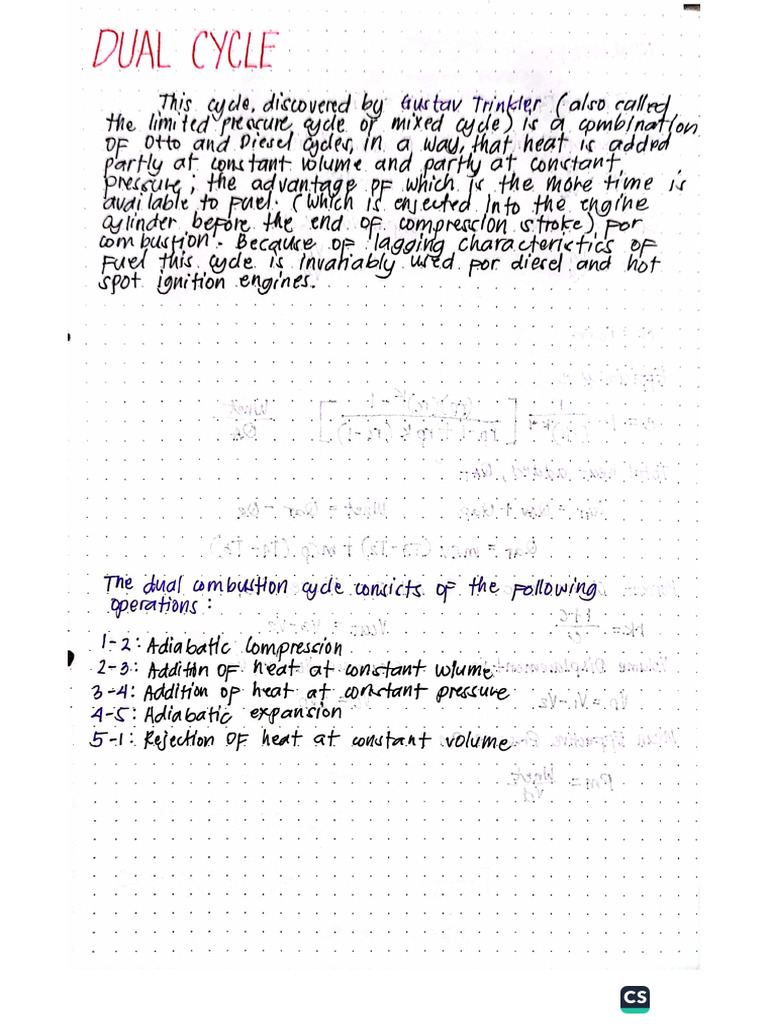 DUAL CYCLE
This cycle, discovered by Gustav Trinkler (also called
the limited pressure cycle or mixed cycle) is a combination
of Otto and Diesel cycles, in a way, that heat is added
partly at constant volume and partly at constant
pressure; the advantage of which is the more time is
available to fuel. (which is enjected into the engine
cylinder before the end of compression stroke) for
combustion. Because of lagging characteristics of
fuel this cycle is invariably used for diesel and hot
spot ignition engines.
The dual combustion cycle consicts of the following
operations:
1-2: Adiabatic Compression
2-3: Addition of heat at constant volume
3-4: Addition of heat at constant pressure
4-5: Adiabatic expansion
5-1: Rejection of heat at constant volume
CS